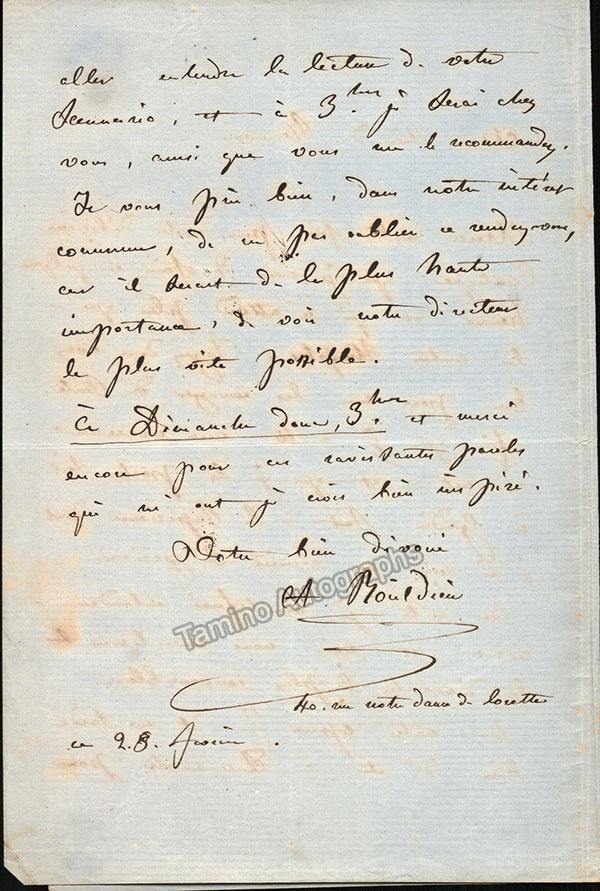 aller entendre la lecture de votre
Scennario, et à 3.hres je serai chez
vous, ainsi que vous me le recommandez.
Je vous prie bien, dans notre intérêt
commun, de ne pas oublier ce rendez-vous,
car il serait de la plus haute
importance, de voir notre directeur
le plus vite possible.
à Dimanche donc, 3.hres et merci
encore pour ces ravissantes paroles
qui m'ont je crois bien inspiré.
Votre bien dévoué
A Boieldieu
40. rue notre dame de lorette
ce 28. fevrier.
Tamino Autographs